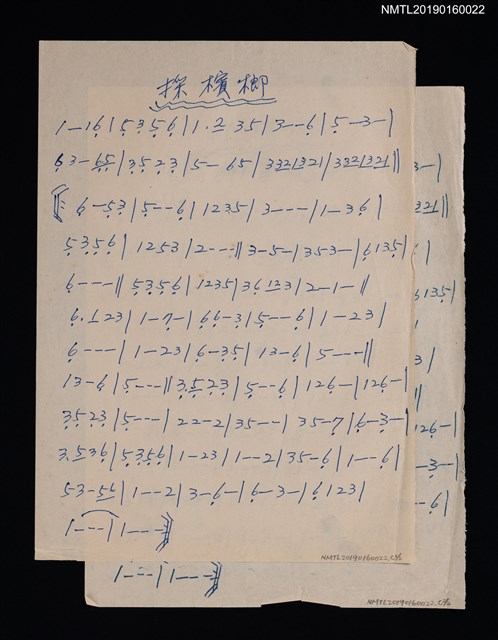 NMTL20190160022
採檳榔
1--16|5356|1·2 35|3--6|5-3-|
63-65|3523|5-65|3321321|3321321||
6-53|5--6|1235|3---|1-36|
5356|1253|2---||3-5-|353-|6135|
6---||5356|1235|36123|2-1-||
6·123|1-7-|66-3|5--6|1-23|
6---|1-23|6-35|13-6|5---||
13-6|5---||3523|5--6|126-|126-|
3523|5---|22-2|35--|35-7|6-3-|
3·536|5356|1-23|1--2|35-6|1--6|
53-56|1--2|3-6-|6-3-|6123|
1---|1---||
NMTL20190160022_
3-|
321||
|
6135|
|
3|
||
126-|
-3-|
--6|
1---|1---||
NMTL20190160022_